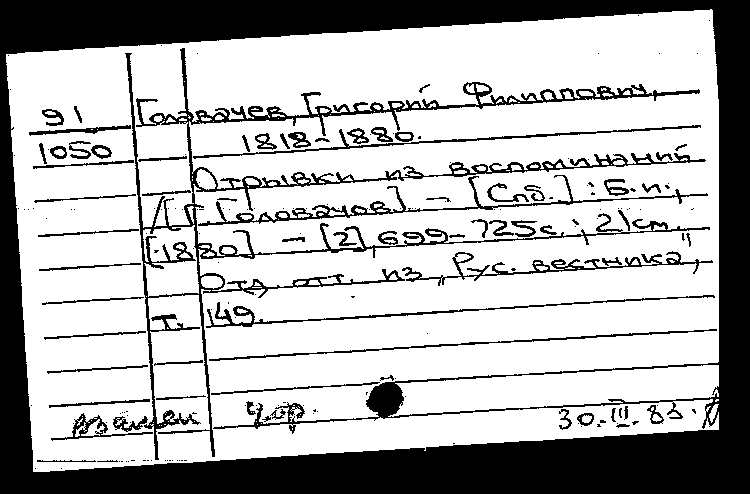 91 Головачев, Григорий Филиппович,
1050 1818-1880.
Отрывки из воспоминаний
/[Г. Головачов] - [Спб.] : Б.и.,
[1880] - [2], 699-725 с.; 21 см.
Отд. отт. из „Рус. вестника",
т. 149.
взамен чор. 30.III.83.